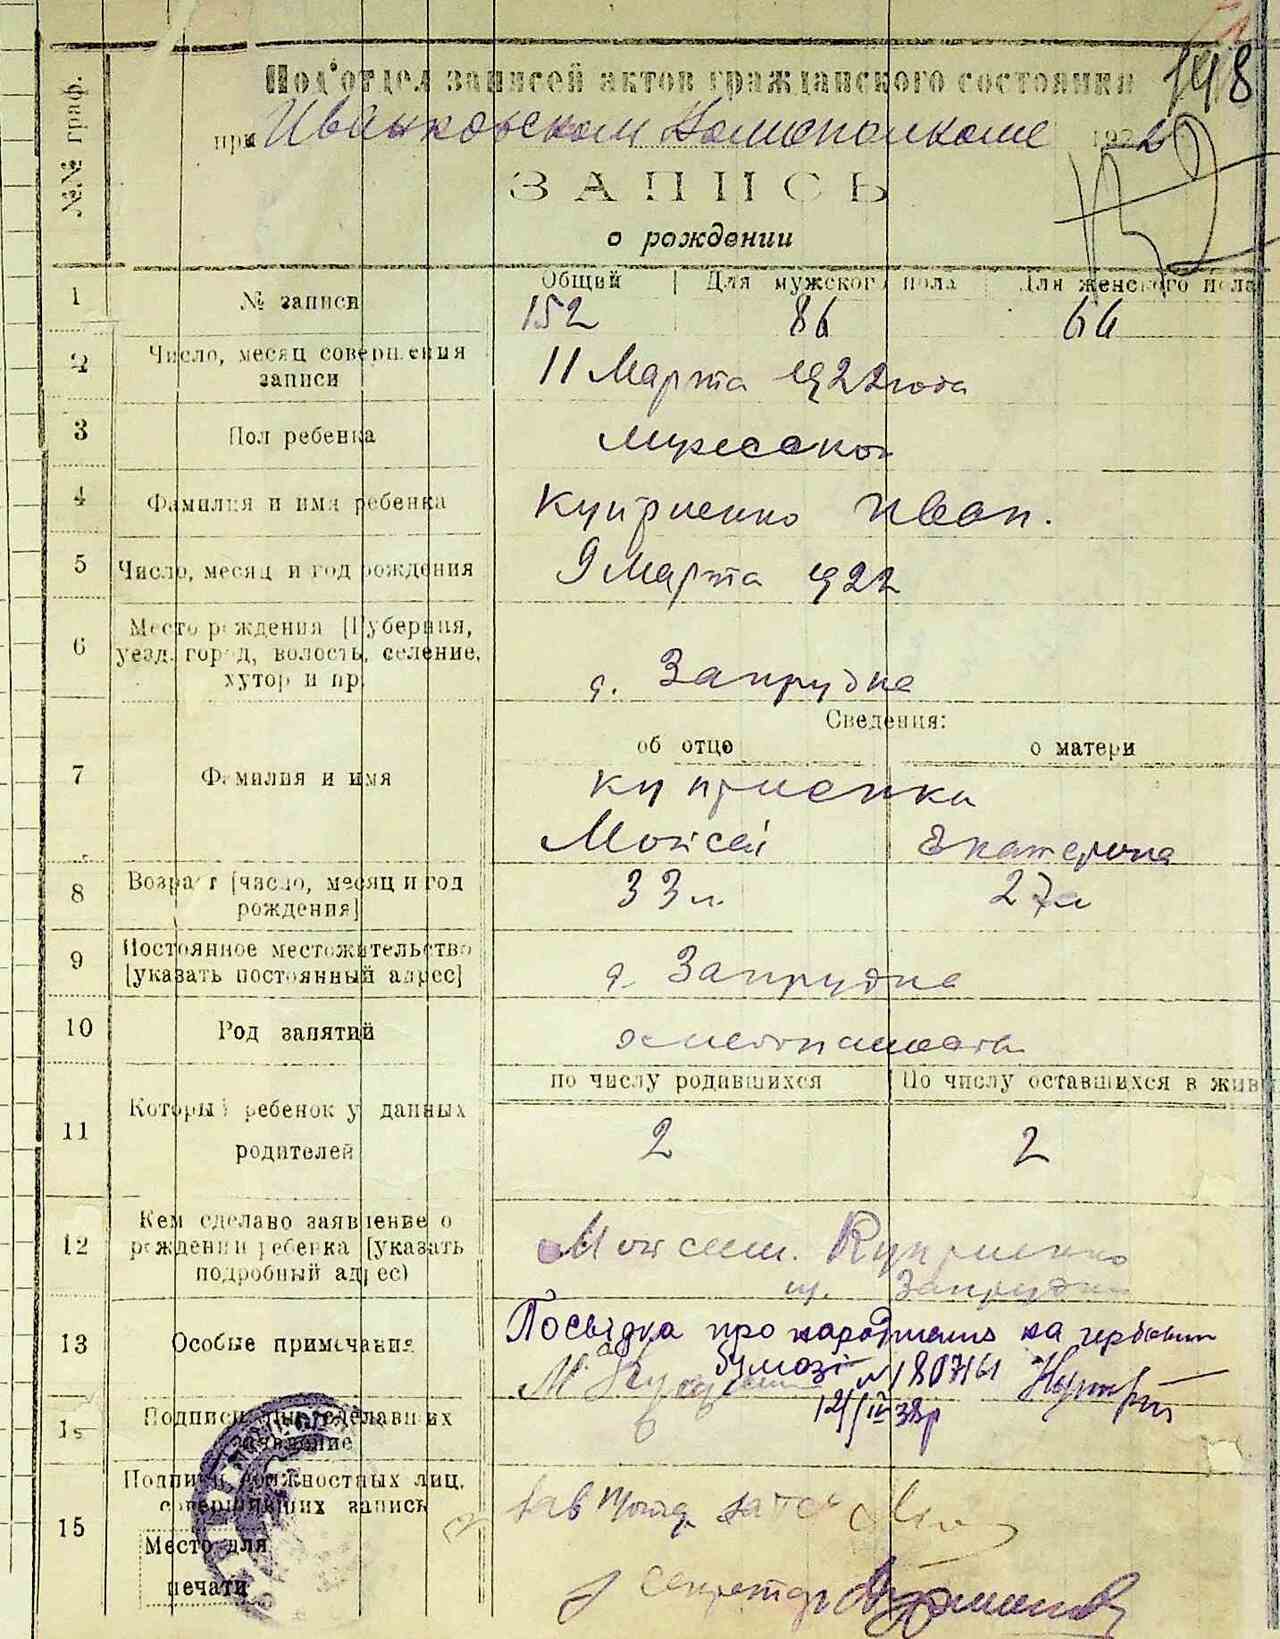 148
Под'отдел записей актов гражданского состояния
№№ граф.
при Иваньковском Волисполкоме 1922
152
ЗАПИСЬ
о рождении
1 № записи Общий Для мужского пола Для женского пола
152 86 66
2 Число, месяц совершения записи 11 Марта 1922 года
3 Пол ребенка мужской
4 Фамилия и имя ребенка Куприенко Иван.
5 Число, месяц и год рождения 9 Марта 1922
6 Место рождения [Губерния, уезд, город, волость, селение, хутор и пр. д. Запрудка
Сведения:
об отце о матери
7 Фамилия и имя Куприенки
Мойсей Екатерина
8 Возраст [число, месяц и год рождения] 33 л. 27 л
9 Постоянное местожительство [указать постоянный адрес] д. Запрудка
10 Род занятий хлебопашество
по числу родившихся По числу оставшихся в жив
11 Который ребенок у данных родителей 2 2
12 Кем сделано заявление о рождении ребенка [указать подробный адрес) Моисеем. Куприенко
Запрудки
13 Особые примечания Посвідка про народження на гербовим
бумазі № 180761
М Куприенко 12/IV 38р
14 Подписи лиц сделавших заявление
15 Подписи должностных лиц, совершивших запись Зав подотд. записи
Место для
печати секретарь